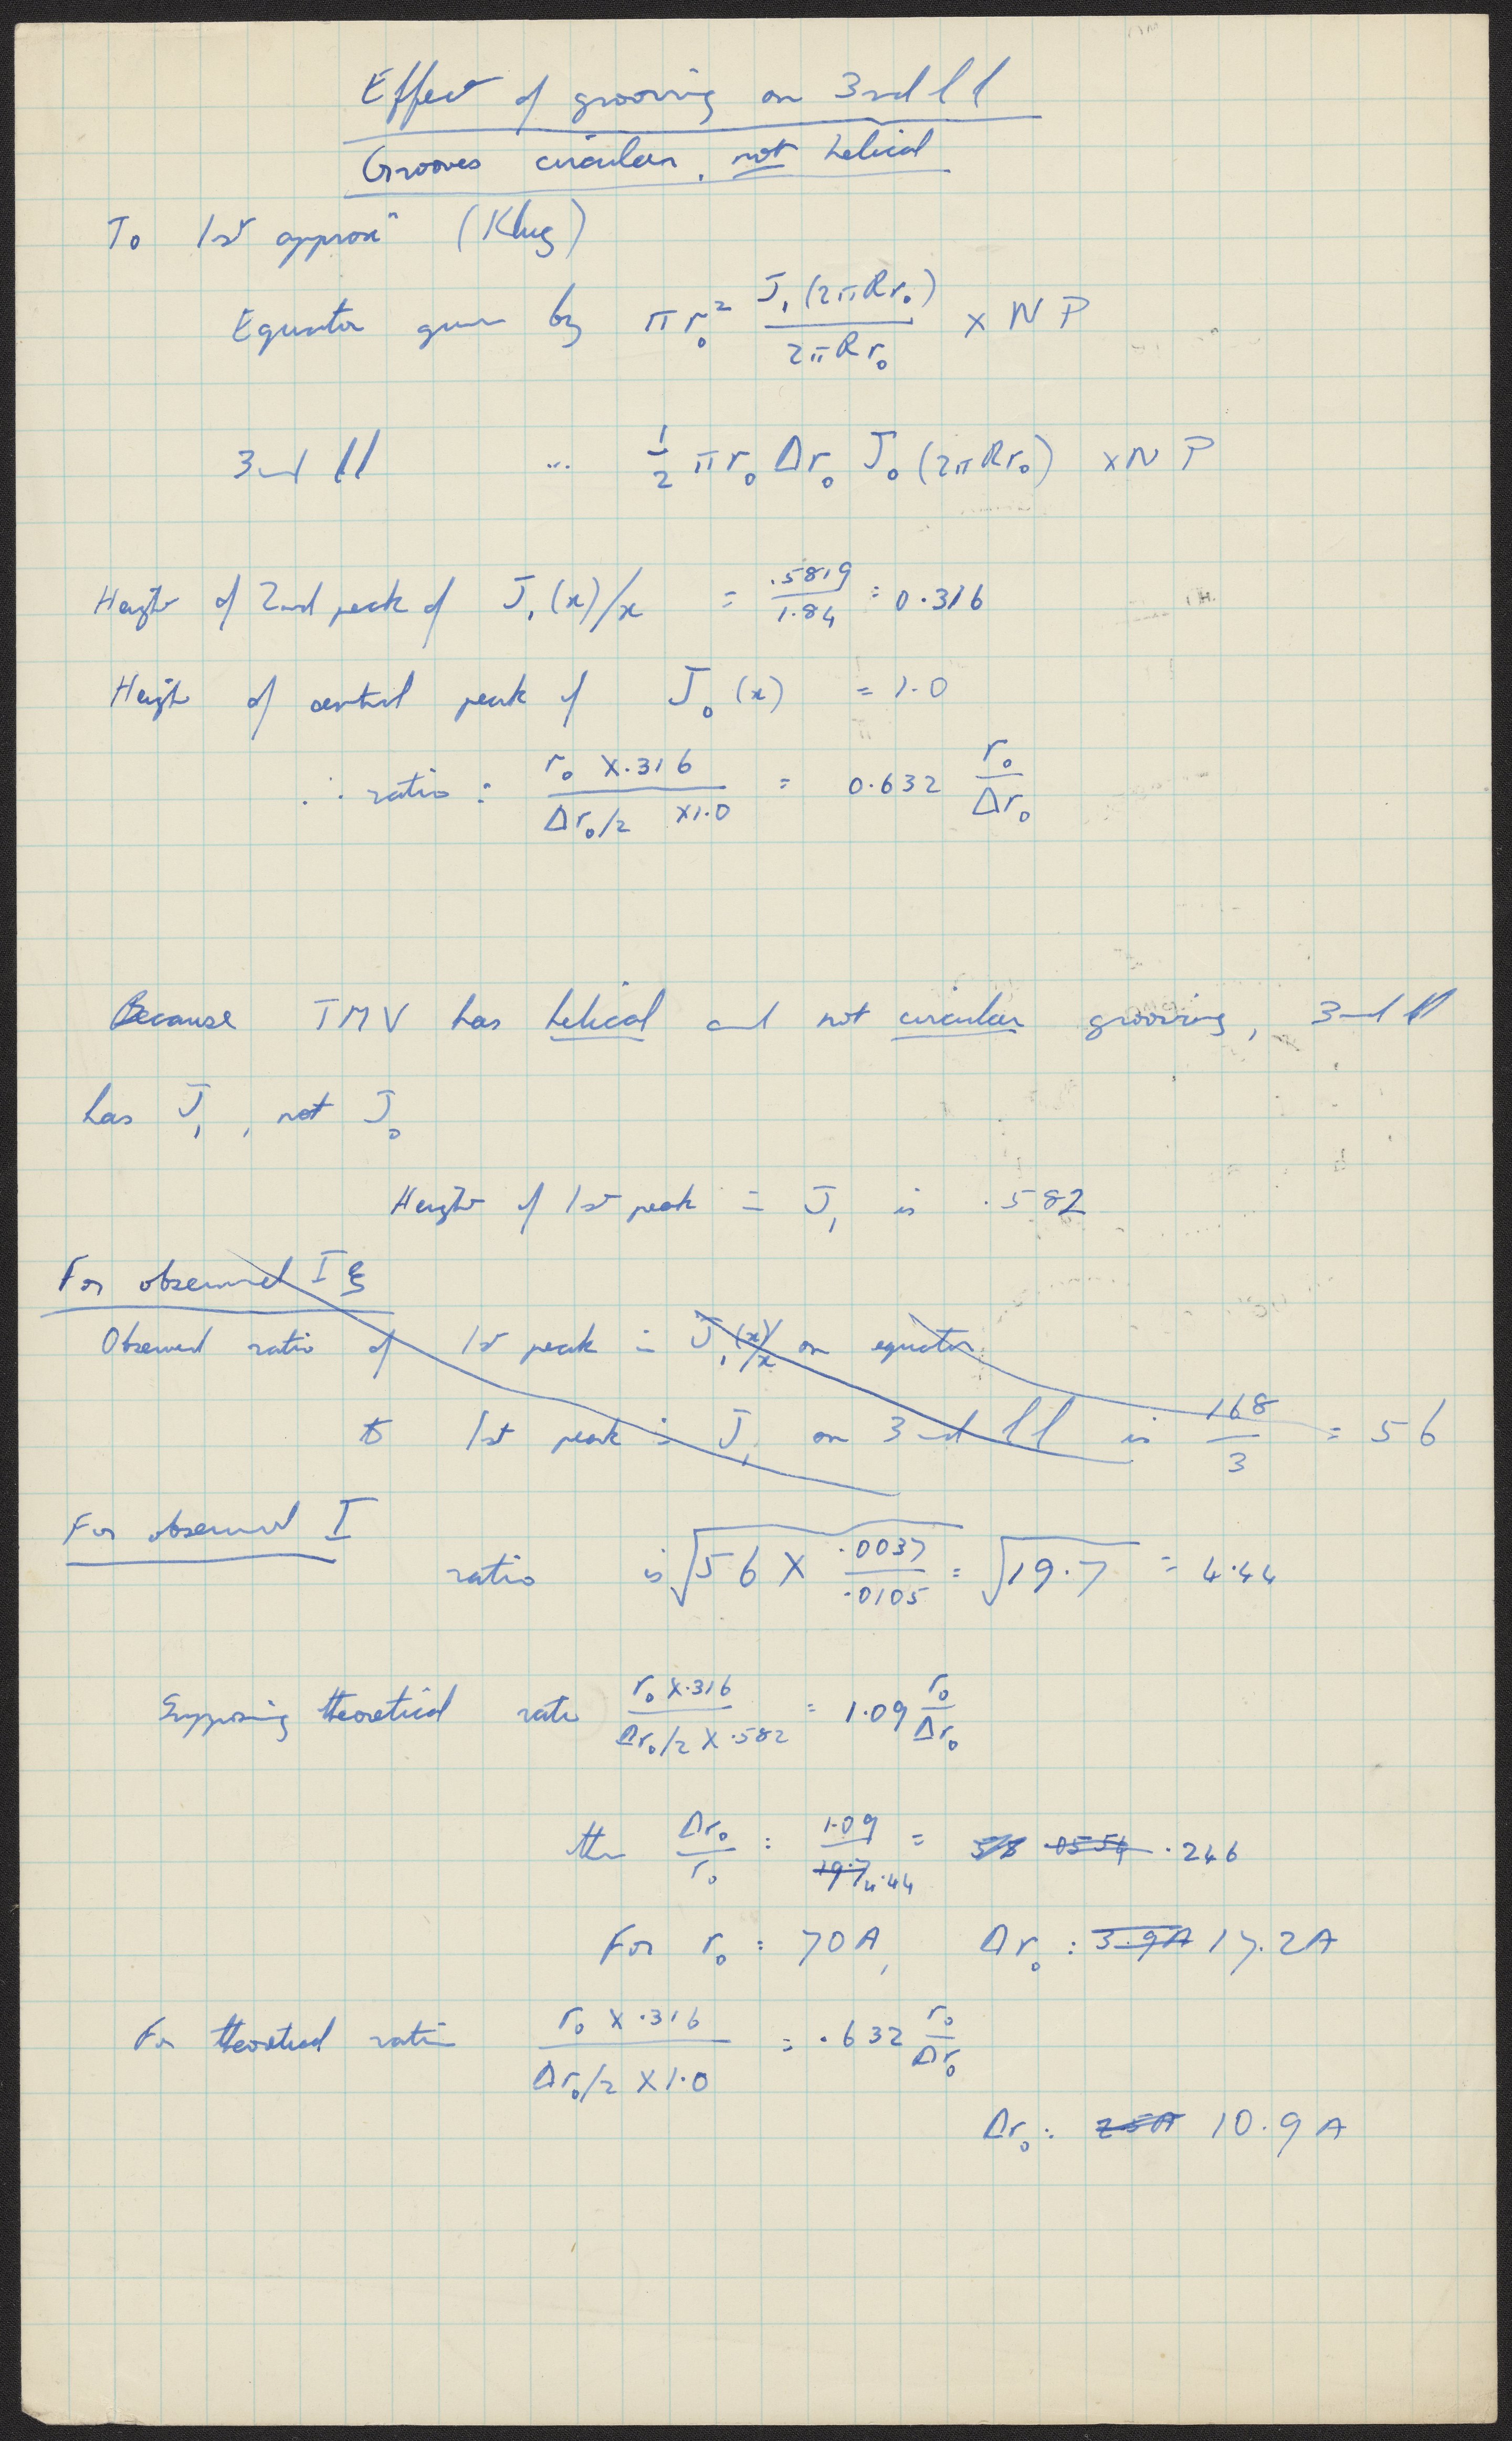 Effect of grooving on 3rd l l
Grooves circular, not helical
To 1st approxn (Klug)
Equator given by π r₀² J₁(2πRr₀) / 2πRr₀ × N P
3rd ll ... ½ π r₀ Δr₀ J₀(2πRr₀) × N P
Height of 2nd peak of J₁(x)/x = .5819 / 1.84 = 0.316
Height of central peak of J₀(x) = 1.0
∴ ratio = r₀ × .316 / Δr₀/2 × 1.0 = 0.632 r₀/Δr₀
Because TMV has helical and not circular grooving, 3rd ll
has J₁, not J₀
Height of 1st peak in J₁ is .582
For observed I ξ
Observed ratio of 1st peak in J₁(x)/x on equator
to 1st peak in J₁ on 3rd ll is 168/3 = 56
For observed I
ratio is √56 × .0037/.0105 = √19.7 = 4.44
Supposing theoretical ratio r₀ × .316 / Δr₀/2 × .582 = 1.09 r₀/Δr₀
then Δr₀/r₀ = 1.09 / 19.7 4.44 = .0554 .246
For r₀ = 70A, Δr₀ = 3.9A 17.2A
For theoretical ratio r₀ × .316 / Δr₀/2 × 1.0 = .632 r₀/Δr₀
Δr₀ = 10.9 A